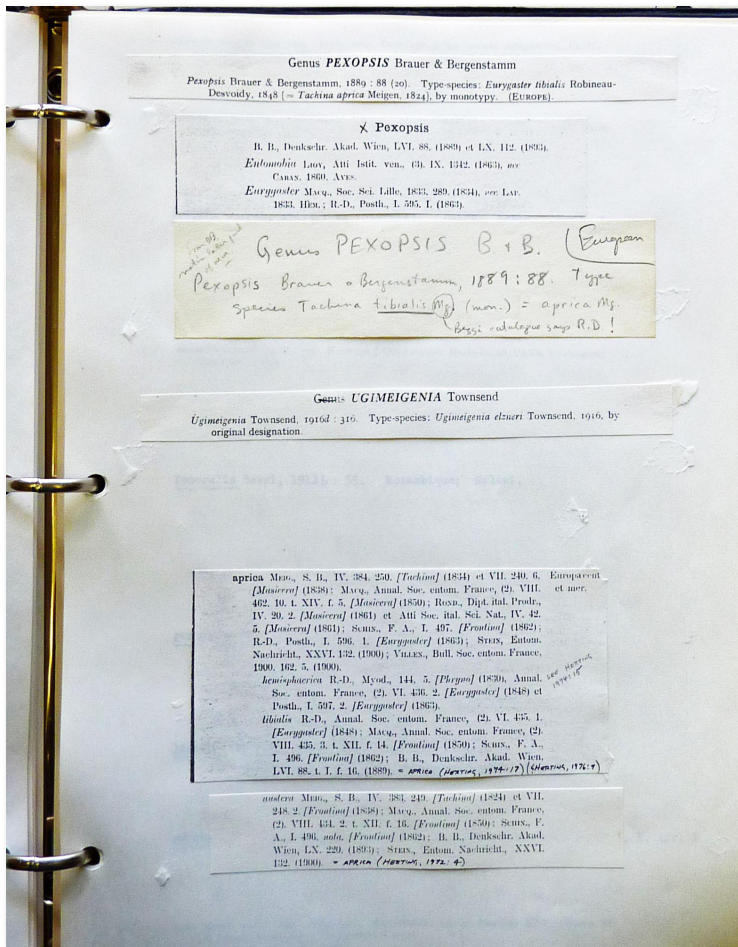 Genus PEXOPSIS Brauer & Bergenstamm
Pexopsis Brauer & Bergenstamm, 1889 : 88 (20). Type-species: Eurygaster tibialis Robineau-
Desvoidy, 1848 [= Tachina aprica Meigen, 1824], by monotypy. (EUROPE).
X Pexopsis
B. B., Denkschr. Akad. Wien, LVI. 88. (1889) et LX. 112. (1893).
Entomobia LIOY, Atti Istit. ven., (3). IX. 1342. (1863), nec
CABAN. 1860. AVES.
Eurygaster MACQ., Soc. Sci. Lille, 1833. 289. (1834), nec LAP.
1833. HEM.; R.-D., Posth., I. 595. I. (1863).
Genus PEXOPSIS B & B. (European
Pexopsis Brauer & Bergenstamm, 1889 : 88. Type
species Tachina tibialis Mg. (mon.) = aprica Mg.
Bezzi catalogue says R.D!
Genus UGIMEIGENIA Townsend
Ugimeigenia Townsend, 1916d : 316. Type-species: Ugimeigenia elzneri Townsend, 1916, by
original designation.
aprica MEIG., S. B., IV. 384. 250. [Tachina] (1834) et VII. 240. 6. Europa cent
[Masicera] (1838); MACQ., Annal. Soc. entom. France, (2). VIII. et mer.
462. 10. t. XIV. f. 5. [Masicera] (1850); ROND., Dipt. ital. Prodr.,
IV. 20. 2. [Masicera] (1861) et Atti Soc. ital. Sci. Nat., IV. 42.
5. [Masicera] (1861); SCHIN., F. A., I. 497. [Frontina] (1862);
R.-D., Posth., I. 596. 1. [Eurygaster] (1863); STEIN, Entom.
Nachricht., XXVI. 132. (1900); VILLEN., Bull. Soc. entom. France,
1900. 162. 5. (1900).
hemisphaerica R.-D., Myod., 144. 5. [Phryno] (1830), Annal. SEE HERTING
Soc. entom. France, (2). VI. 436. 2. [Eurygaster] (1848) et 1974:15
Posth., I. 597. 2. [Eurygaster] (1863).
tibialis R.-D., Annal. Soc. entom. France, (2). VI. 435. 1.
[Eurygaster] (1848); MACQ., Annal. Soc. entom. France, (2).
VIII. 435. 3. t. XII. f. 14. [Frontina] (1850); SCHIN., F. A.,
I. 496. [Frontina] (1862); B. B., Denkschr. Akad. Wien,
LVI. 88. t. I. f. 16. (1889). = APRICA (HERTING, 1974:17) (& HERTING, 1976:7)
austera MEIG., S. B., IV. 383. 249. [Tachina] (1824) et VII.
248. 2. [Frontina] (1838); MACQ., Annal. Soc. entom. France,
(2). VIII. 434. 2. t. XII. f. 16. [Frontina] (1850); SCHIN., F.
A., I. 496. nota. [Frontina] (1862); B. B., Denkschr. Akad.
Wien, LX. 220. (1893); STEIN., Entom. Nachricht., XXVI.
132. (1900). = APRICA (HERTING, 1972:4)